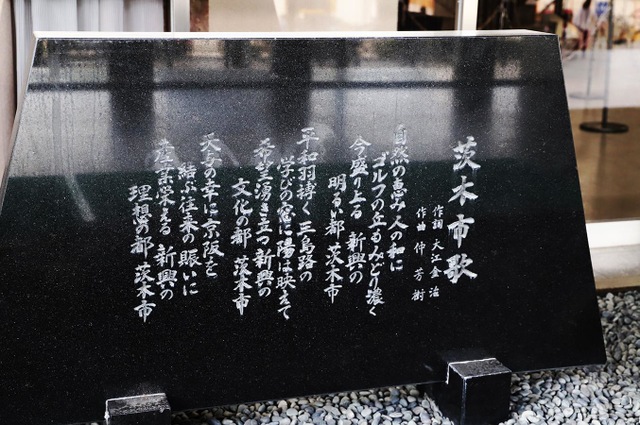 茨木市歌
作詞 大江金治
作曲 仲芳樹
自然の恵み人の和に
ゴルフの丘もみどり濃く
今盛り上る 新興の
明るい都 茨木市
平和羽搏く三島路の
学びの窓に陽は映えて
希望湧き立つ新興の
文化の都 茨木市
天与の幸に京阪を
結ぶ往来の賑いに
産業栄える 新興の
理想の都 茨木市